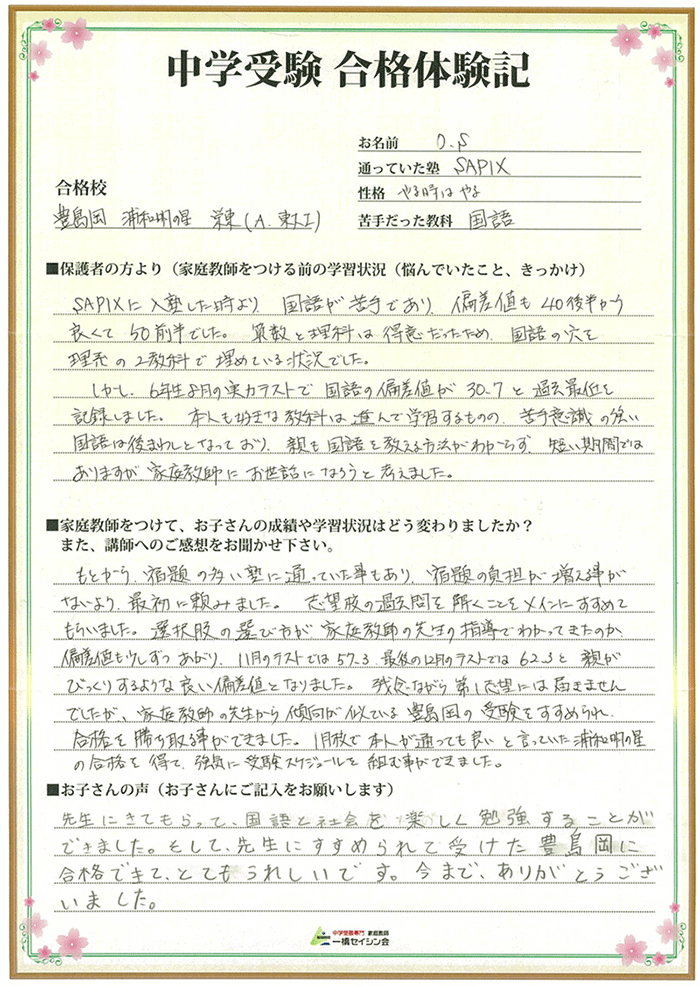 中学受験 合格体験記
お名前 O.S
通っていた塾 SAPIX
合格校
性格 やる時はやる
豊島岡 浦和明の星 栄東(A.東大I)
苦手だった教科 国語
■保護者の方より（家庭教師をつける前の学習状況（悩んでいたこと、きっかけ）
SAPIXに入塾した時より、国語が苦手であり、偏差値も40後半から
良くて50前半でした。算数と理科は得意だったため、国語の穴を
理系の2教科で埋めている状況でした。
しかし、6年生8月の実力テストで国語の偏差値が30.7と過去最低を
記録しました。本人も好きな教科は進んで学習するものの、苦手意識の強い
国語は後まわしとなっており、親も国語を教える方法がわからず、短い期間では
ありますが家庭教師にお世話になろうと考えました。
■家庭教師をつけて、お子さんの成績や学習状況はどう変わりましたか？
また、講師へのご感想をお聞かせ下さい。
もとから、宿題の多い塾に通っていた事もあり、宿題の負担が増える事が
ないよう、最初に頼みました。志望校の過去問を解くことをメインにすすめて
もらいました。選択肢の選び方が家庭教師の先生の指導でわかってきたのか、
偏差値も少しずつあがり、11月のテストでは57.3、最後の12月のテストでは62.3と親が
びっくりするような良い偏差値となりました。残念ながら第1志望には届きません
でしたが、家庭教師の先生から傾向が似ている豊島岡の受験をすすめられ、
合格を勝ち取る事ができました。1月校で本人が通っても良いと言っていた浦和明の星
の合格を得て、強気に受験スケジュールを組む事ができました。
■お子さんの声（お子さんにご記入をお願いします）
先生にきてもらって、国語と社会を楽しく勉強することが
できました。そして、先生にすすめられて受けた豊島岡に
合格できて、とてもうれしいです。今まで、ありがとうござ
いました。
中学受験専門 家庭教師
一橋セイシン会